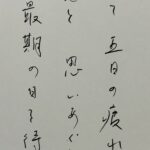 て五日の疲れ
悠と思いあぐ
最期の日を待